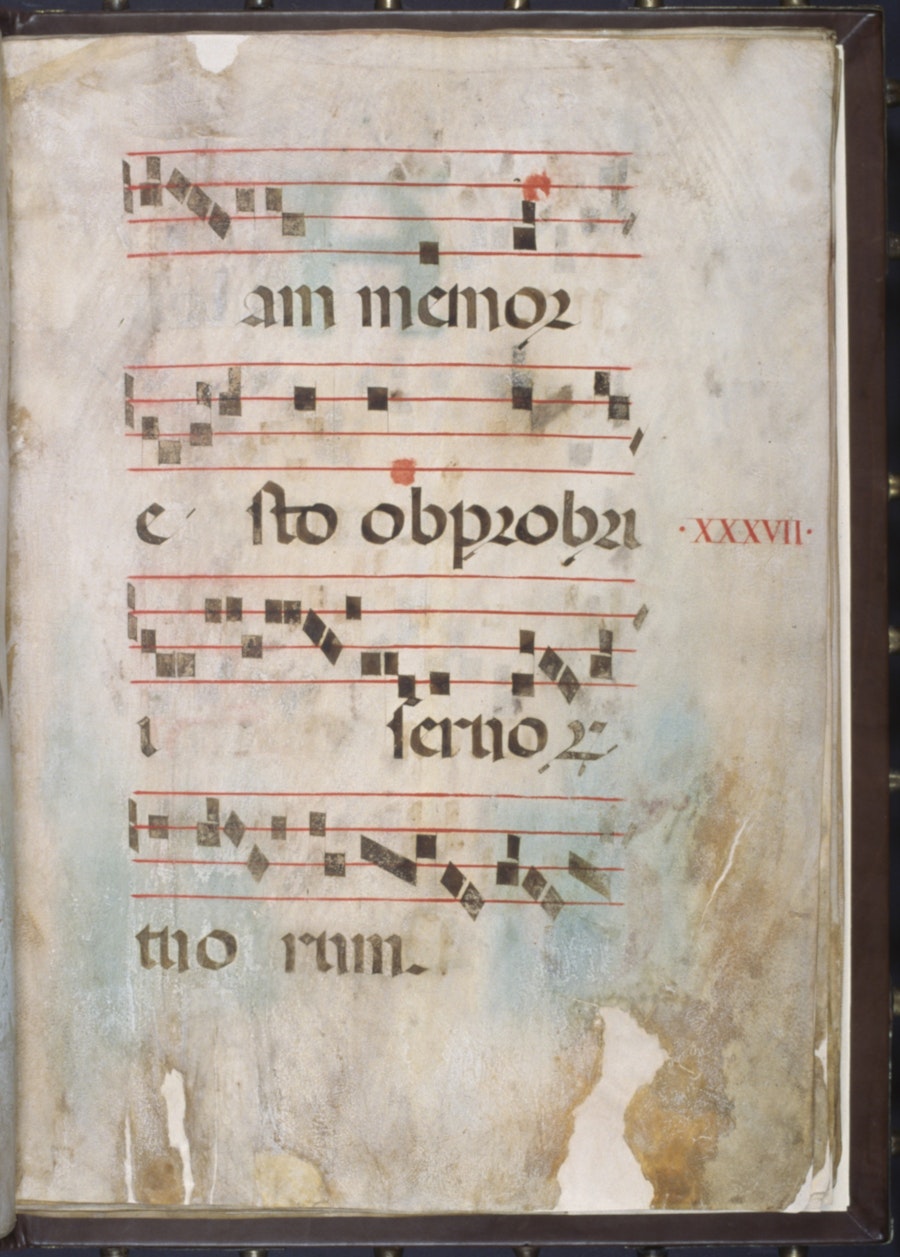 am memor
e sto obprobri
·XXXVII·
i seruo r
tuo rum.